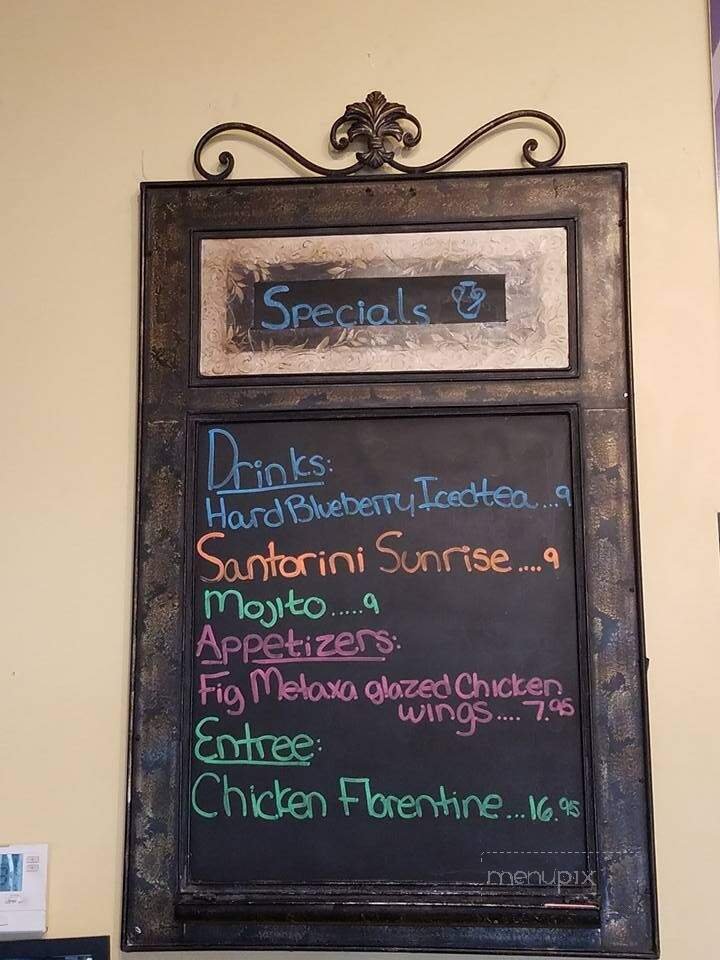 Specials
Drinks:
Hard Blueberry Icedtea...9
Santorini Sunrise....9
Mojito.....9
Appetizers:
Fig Metaxa glazed Chicken
wings.... 7.95
Entree:
Chicken Florentine...16.95
menupix